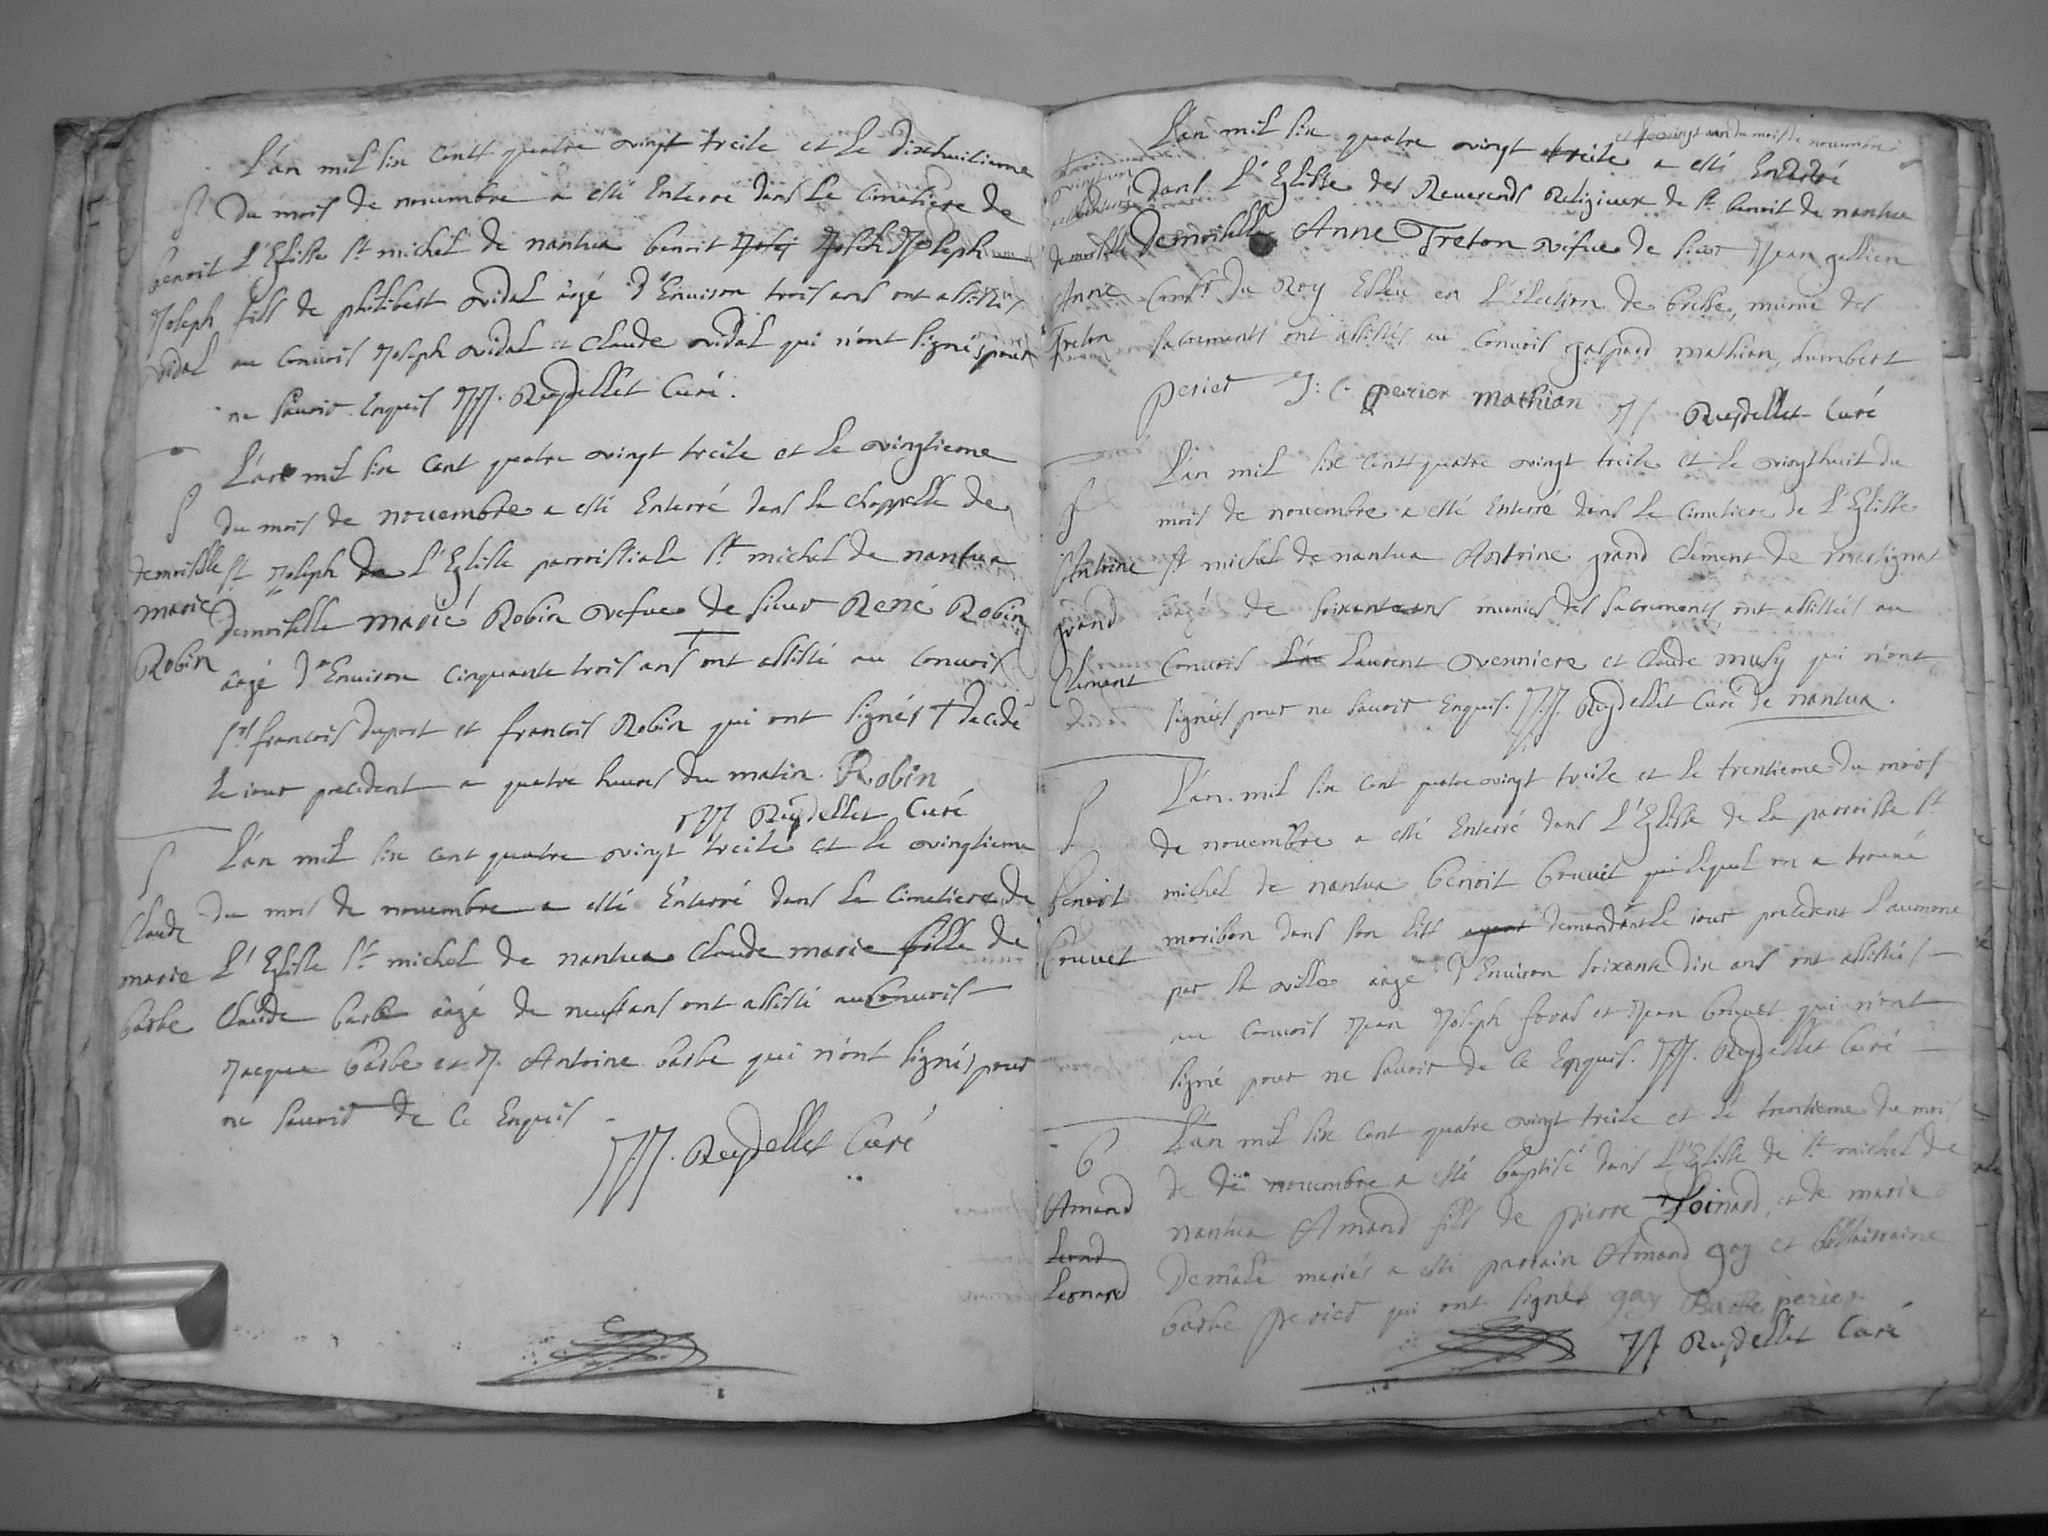 L'an mil six centt quatre vingt treile et le dixhuitieme
S
du mois de novembre a esté Enterré dans le Cimetiere de
benoit
L'Eglisse st michel de nantua benoit Joseph
Joseph
fils de philibert vidal aagé d'Enuiron trois ans ont assistés
vidal
au Conuois Joseph vidal et Claude vidal qui n'ont signés pour
ne sauoir Enquis JJ. Reydellet Curé.
L'an mil six cent quatre vingt treile et le vingtieme
S
du mois de nouembre a esté Enterré dans la chappelle de
demoiselle
st Joseph de L'Eglisse parroissiale st michel de nantua
marie
demoiselle marie Robin vefue de sieur René Robin
Robin
aagé d'Enuiron cinquante trois ans ont assisté au conuois
srs francois duport et francois Robin qui ont signés + decedé
le iour precedent a quatre heures du matin. Robin
JJ Reydellet Curé
L'an mil six cent quatre vingt treile et le vingtieme
S
Claude
du mois de nouembre a esté Enterré dans le Cimetiere de
marie
L'Eglisse st michel de nantua Claude marie fille de
barbe
Claude barbe aagé de neuf ans ont assisté au Conuois
Jacque barbe et J. Antoine barbe qui n'ont signés pour
ne sauoir de ce Enquis
JJ. Reydellet Curé
et le vingt un du mois de nouembre
L'an mil six quatre vingt treile a esté Enterré
dans L'Eglisse des Reuerends Religieux de st benoit de nantua
demoiselle
demoiselle Anne Treton vefue de sieur Jean gallien
Anne
Consr du Roy Esleu en L'élection de bresse, munie des
Treton
sacrements ont assistés au Conuois gaspard mathian, humbert
perier J: C. perier mathian JJ Reydellet Curé
L'an mil six centt quatre vingt treile et le vingthuit du
S
mois de nouembre a esté Enterré dans le Cimetiere de L'Eglisse
Antoine
st michel de nantua Antoine grand Clement de martignat
grand
aagé de soixante ans munies des sacrements, ont assistés au
Clement
Conuois Laurent venniere et Claude musy qui n'ont
signés pour ne sauoir Enquis. JJ. Reydellet Curé de nantua.
L'an mil six cent quatre vingt treile et le trentieme du mois
S
de nouembre a esté Enterré dans L'Eglisse de la parroisse st
benoit
michel de nantua benoit bruuet lequel on a trouué
bruuet
moribon dans son litt demandant le iour precedent l'aumone
par la ville aagé d'Enuiron soixante dix ans ont assistés
au Conuois Jean Joseph et Jean bruuet qui n'ont
signé pour ne sauoir de ce Enquis. JJ. Reydellet Curé
L'an mil six cent quatre vingt treile et le trentieme du mois
B
de nouembre a esté baptisé dans L'Eglisse de st michel de
Amand
nantua Amand fils de pierre et de marie
Leonard
mariés a esté parrain Amand gay et
barbe perier qui ont signés gay Barbe perier
JJ Reydellet Curé